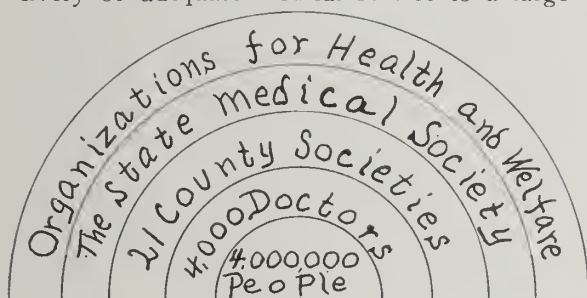 Organizations for Health and Welfare
The State Medical Society
21 County Societies
4000 Doctors
4,000,000
People